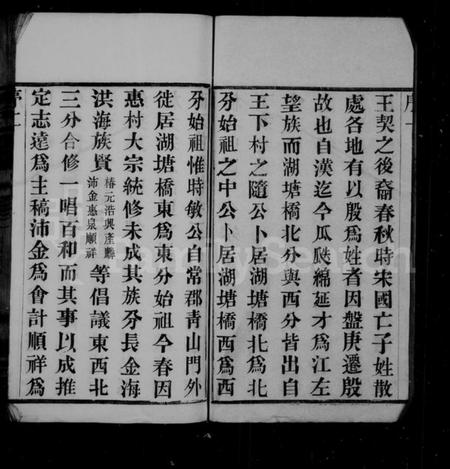 序一
王契之後裔春秋時宋國亡子姓散
處各地有以殷爲姓者因盤庚遷殷
故也自漢迄今瓜瓞綿延才爲江左
望族而湖塘橋北分與西分皆出自
王下村之隨公卜居湖塘橋北爲北
分始祖之中公卜居湖塘橋西爲西
分始祖惟時敏公自常郡青山門外
徙居湖塘橋東爲東分始祖今春因
惠村大宗統修未成其族分長金海
洪海族賢椿元浩興產麟沛金惠泉順祥等倡議東西北
三分合修一唱百和而其事以成推
定志達爲主稿沛金爲會計順祥爲
序二
FamilySearch